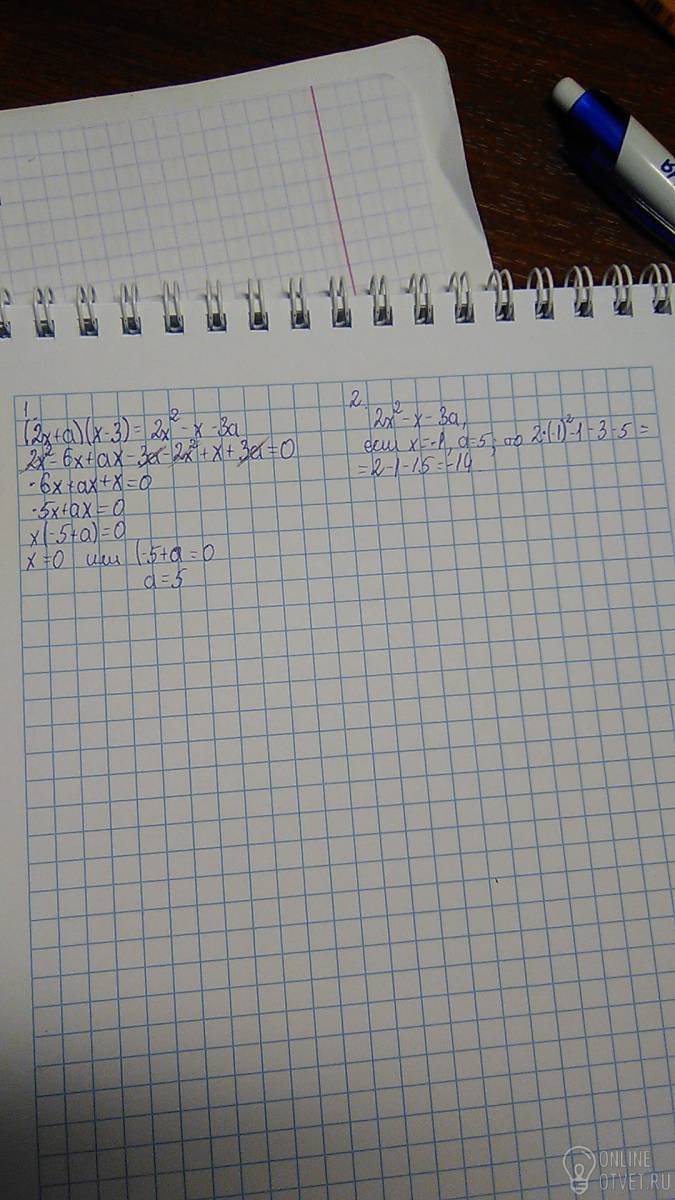 1.
(2x+a)(x-3)=2x²-x-3a
2x²-6x+ax-3a-2x²+x+3a=0
-6x+ax+x=0
-5x+ax=0
x(-5+a)=0
x=0 или (-5+a=0
a=5
2.
2x²-x-3a,
если x=-1, a=5, то 2·(-1)²-1-3-5=
=2-1-15=-14
ONLINE
OTVET.RU